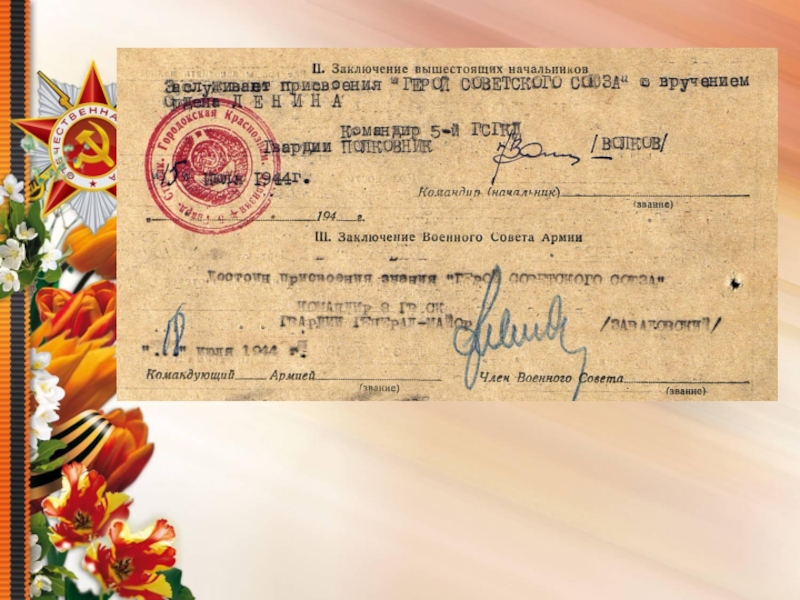 II. Заключение вышестоящих начальников
Заслуживает присвоения "ГЕРОЙ СОВЕТСКОГО СОЮЗА" с вручением
ордена ЛЕНИНА
Командир 5-й ГСГКД
Гвардии ПОЛКОВНИК /ВОЛКОВ/
"15" июля 1944г.
Командир (начальник)
(звание)
" " 194 г.
III. Заключение Военного Совета Армии
Достоин присвоения звания "ГЕРОЯ СОВЕТСКОГО СОЮЗА"
КОМАНДИР СК
ГВАРДИИ ГЕНЕРАЛ-МАЙОР /ЗАВАДОВСКИЙ/
"18" июля 1944 г.
Командующий Армией Член Военного Совета
(звание) (звание)
Городокская Краснозн.
ОТЕЧЕСТВЕННАЯ